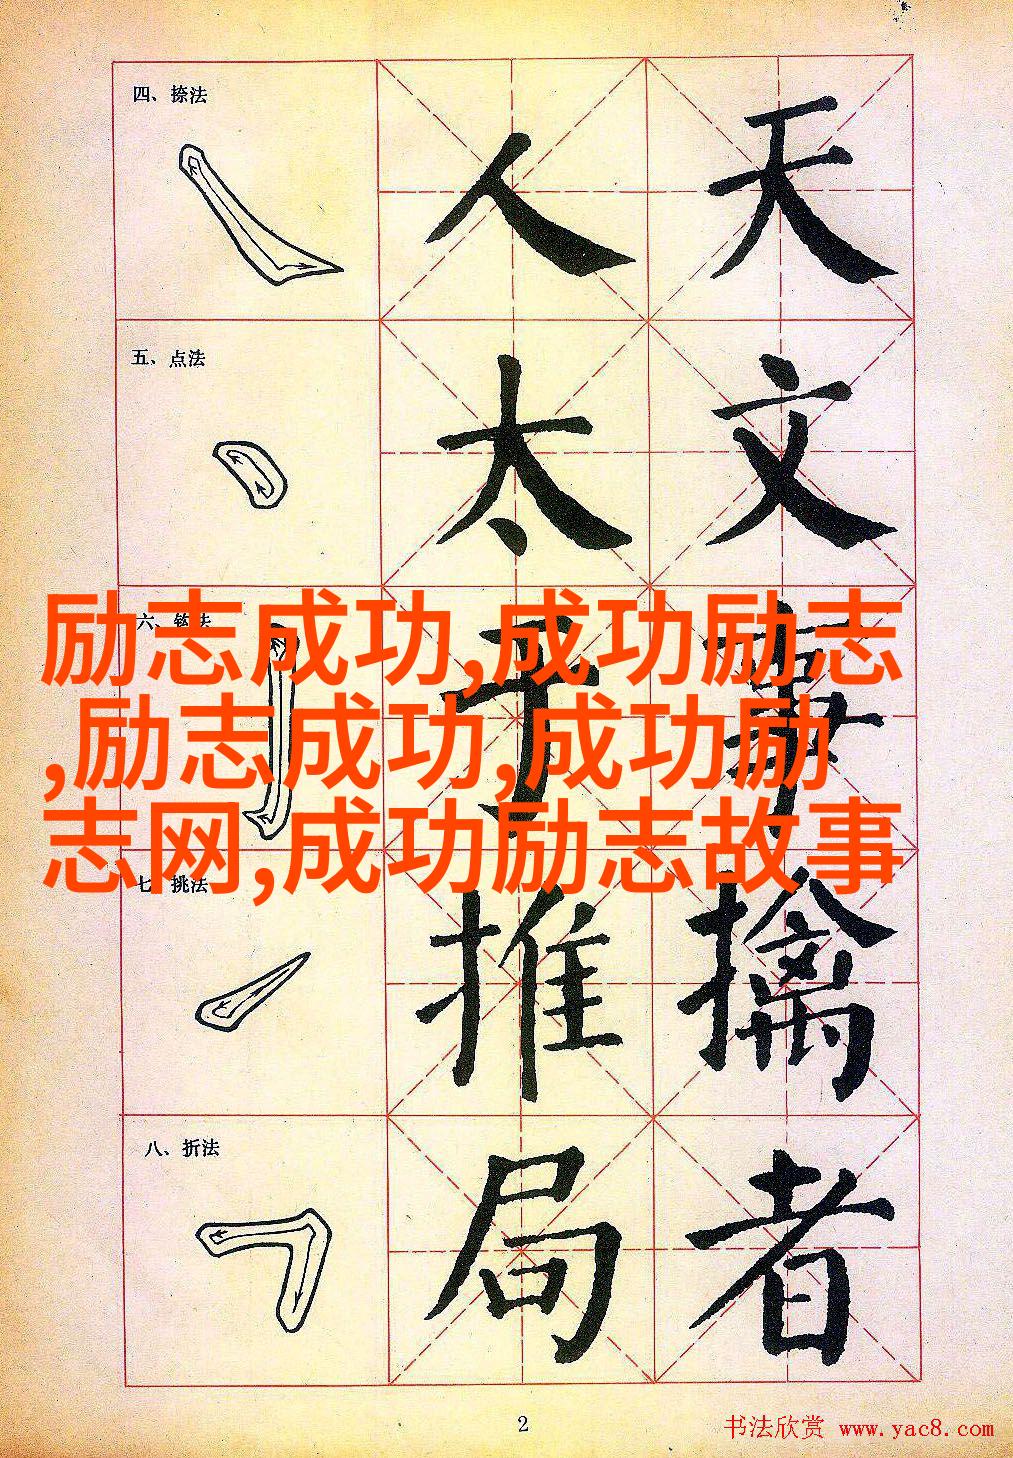 四、捺法
人 天
五、点法
太 文
六、钩法
乎 事
励志成功,成功励志
,励志成功,成功励
志网,成功励志故事
七、挑法
推 擒
八、折法
局 者
2
书法欣赏 www.yac8.com